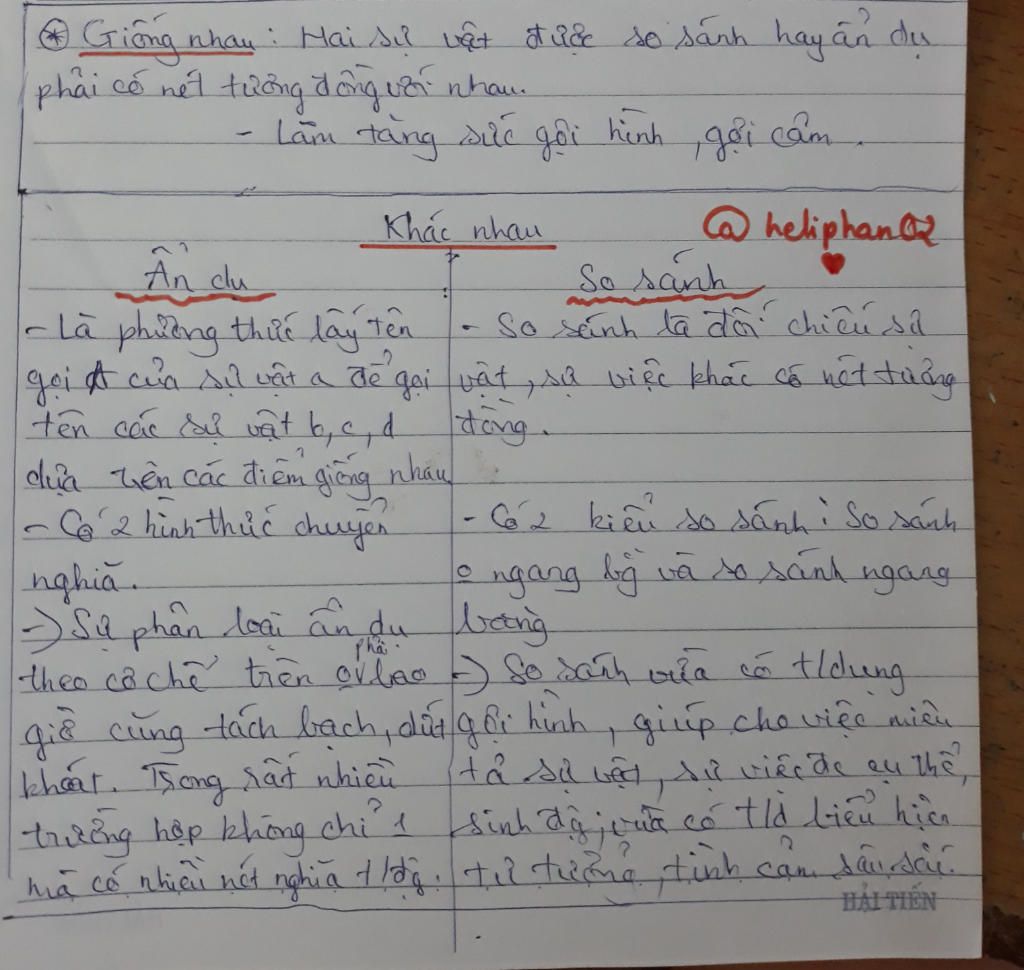 * Giống nhau: Hai sự vật được so sánh hay ẩn dụ
phải có nét tương đồng với nhau.
- Làm tăng sức gợi hình, gợi cảm.
Khác nhau
@heliphan02
Ẩn dụ
- Là phương thức lấy tên
gọi A của sự vật a để gọi
tên các sự vật b, c, d
dựa trên các điểm giống nhau
- Có 2 hình thức chuyển
nghĩa.
-> Sự phân loại ẩn dụ
theo cơ chế trên o phải bao
giờ cũng tách bạch, dứt
khoát. Trong rất nhiều
trường hợp không chỉ 1
mà có nhiều nét nghĩa t/đg.
So sánh
- So sánh là đối chiếu sự
vật, sự việc khác có nét tương
đồng.
- Có 2 kiểu so sánh: So sánh
o ngang bg và so sánh ngang
bường
-> So sánh vừa có t/dụng
gợi hình, giúp cho việc miêu
tả sự vật, sự việc đc cụ thể,
sinh độg; vừa có t/d biểu hiện
tư tưởng, tình cảm sâu sắc.
HẢI TIẾN